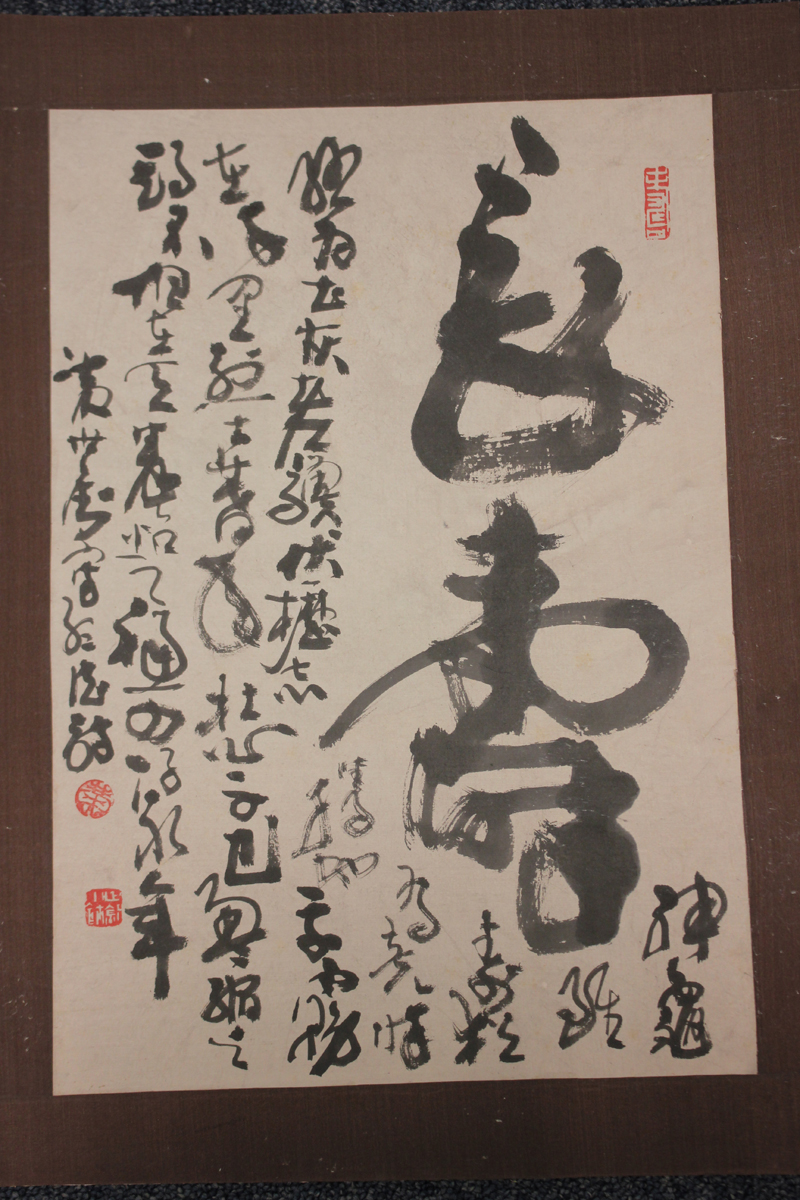 長壽
神龜
雖
壽猶
有竟時
騰蛇
乘霧
終為土灰老驥伏櫪志
在千里烈士暮年壮心不已盈縮之
期不但在天養怡之福可得永年
德詩